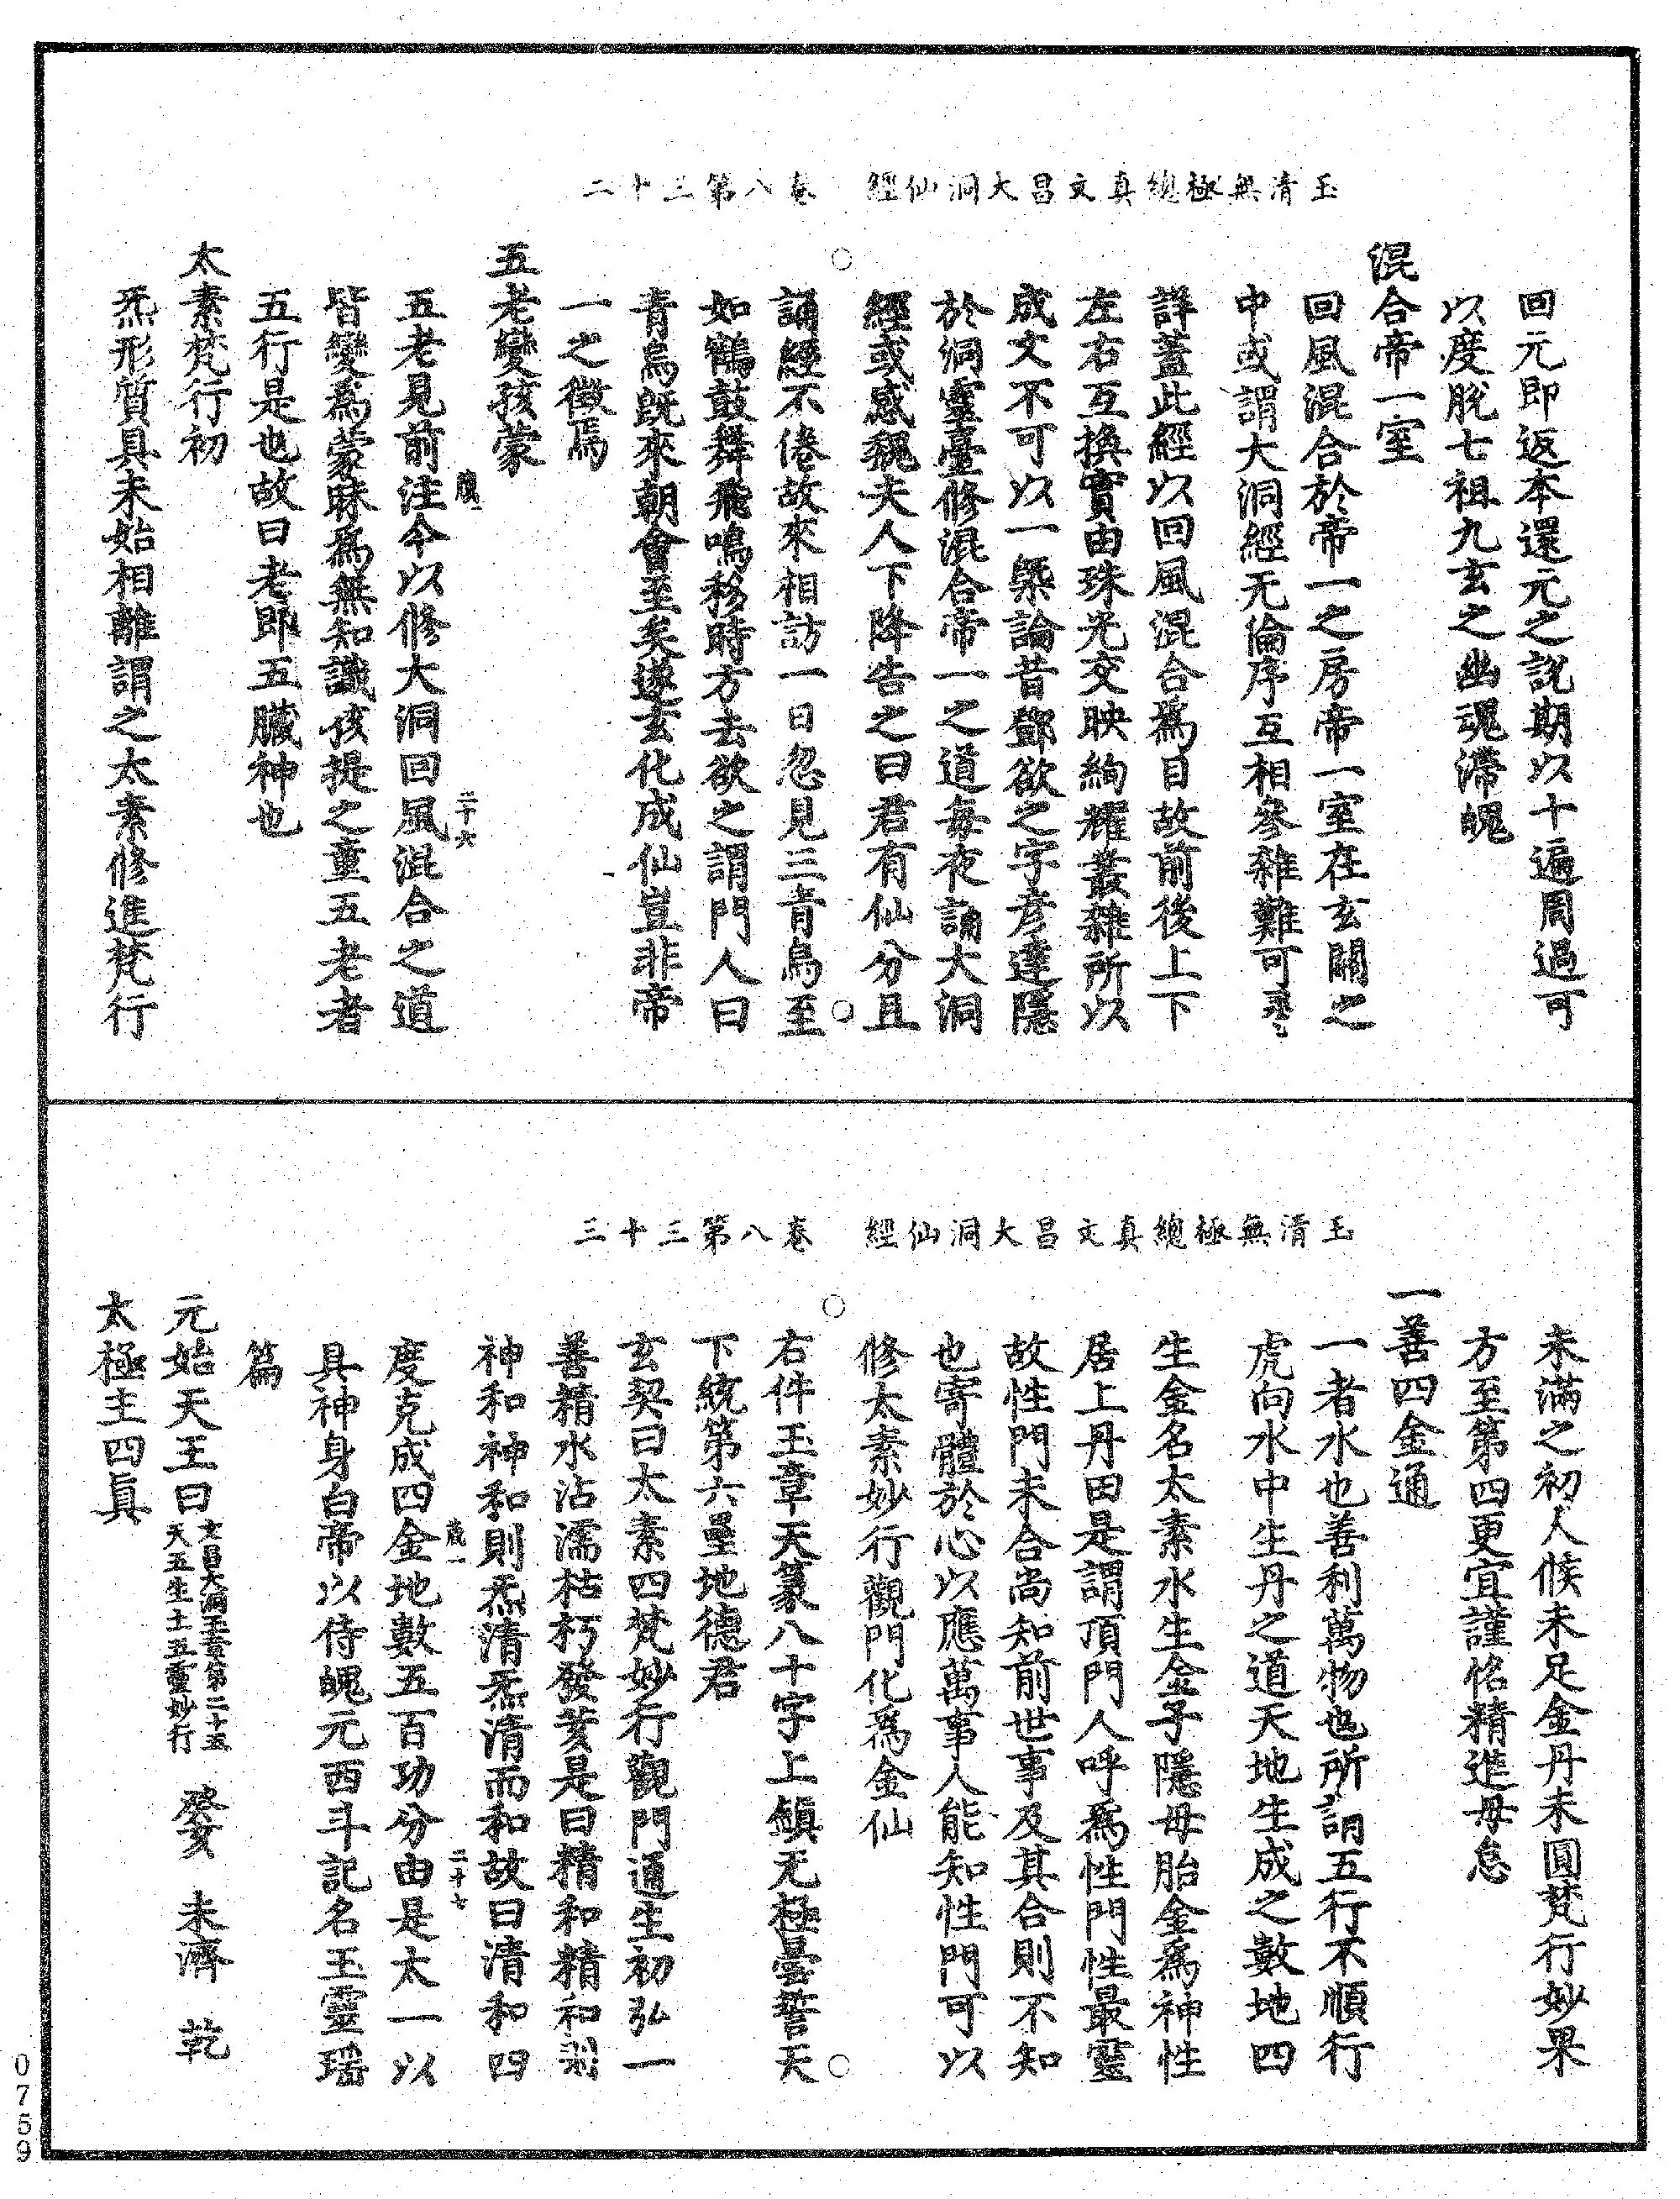 玉清無極總真文昌大洞仙經　卷八第三十二
回元即返本還元之說期以十遍周過可
以度脫七祖九玄之幽魂滯魄
混合帝一室
回風混合於帝一之房帝一室在玄關之
中或謂大洞經无倫序互相參雜難可尋
詳蓋此經以回風混合為目故前後上下
左右互換實由珠光交映絢耀叢雜所以
成文不可以一槩論昔鄧欲之字彥達隱
於洞靈臺修混合帝一之道每夜誦大洞
經或感魏夫人下降告之曰君有仙分且
誦經不倦故來相訪一日忽見三青鳥至
如鶴鼓舞飛鳴移時方去欲之謂門人曰
青鳥既來朝會至矣遂玄化成仙豈非帝
一之徵焉
五老變孩蒙
五老見前注今以修大洞回風混合之道
皆變為蒙昧為無知識孩提之童五老者
五行是也故曰老即五臟神也
太素梵行初
炁形質具未始相離謂之太素修進梵行
玉清無極總真文昌大洞仙經　卷八第三十三
未滿之初人候未足金丹未圓梵行妙果
方至第四更宜謹恪精進毋怠
一善四金通
一者水也善利萬物也所謂五行不順行
虎向水中生丹之道天地生成之數地四
生金名太素水生金子隱母胎金為神性
居上丹田是謂頂門人呼為性門性最靈
故性門未合尚知前世事及其合則不知
也寄體於心以應萬事人能知性門可以
修太素妙行觀門化為金仙
右件玉章天篆八十字上鎮无極曇誓天
下統第六壘地德君
玄契曰太素四梵妙行觀門通生初弘一
善精水沾濡枯朽發荄是曰精和精和則
神和神和則炁清炁清而和故曰清和四
度克成四金地數五百功分由是太一以
具神身白帝以侍魄元西斗記名玉靈瑤
篇
元始天王曰文昌大洞玉章第二十五天五生土五靈妙行　癸女　未濟　乾
太極主四真
二十六
二十七
0759